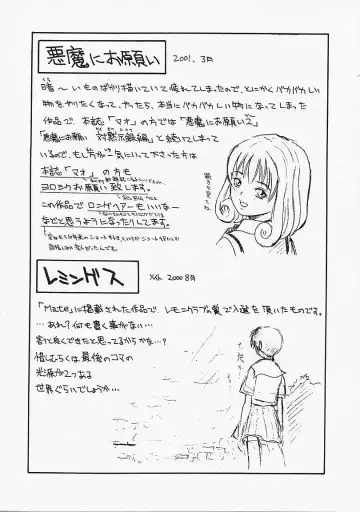 悪魔にお願い 2001.3月
暗〜いものばかり描いていて疲れてしまったので、とにかくバカバカしい
物をやりたくなって、やったら、本当にバカバカしい物になってしまった
作品で 本誌「マオ」の方では「悪魔にお願い2」
「悪魔にお願い 対黙示録編」と続いてしまって
いるので、もし万が一気にいって下さった方は
本誌「マオ」の方も
ヨロシクお願い致します。
この作品で ロングヘアーもいいなー
などと思うようになったりしてます。
レミングス 2000 8月
「Mate」に掲載された作品で、レモンクラブ賞で入選を頂いたものです。
…あれ?何も書く事がない…
割と良くできたと思ってるからかな…?
惜しむらくは最後のコマの
光源が2つある
世界ぐらいでしょうか…